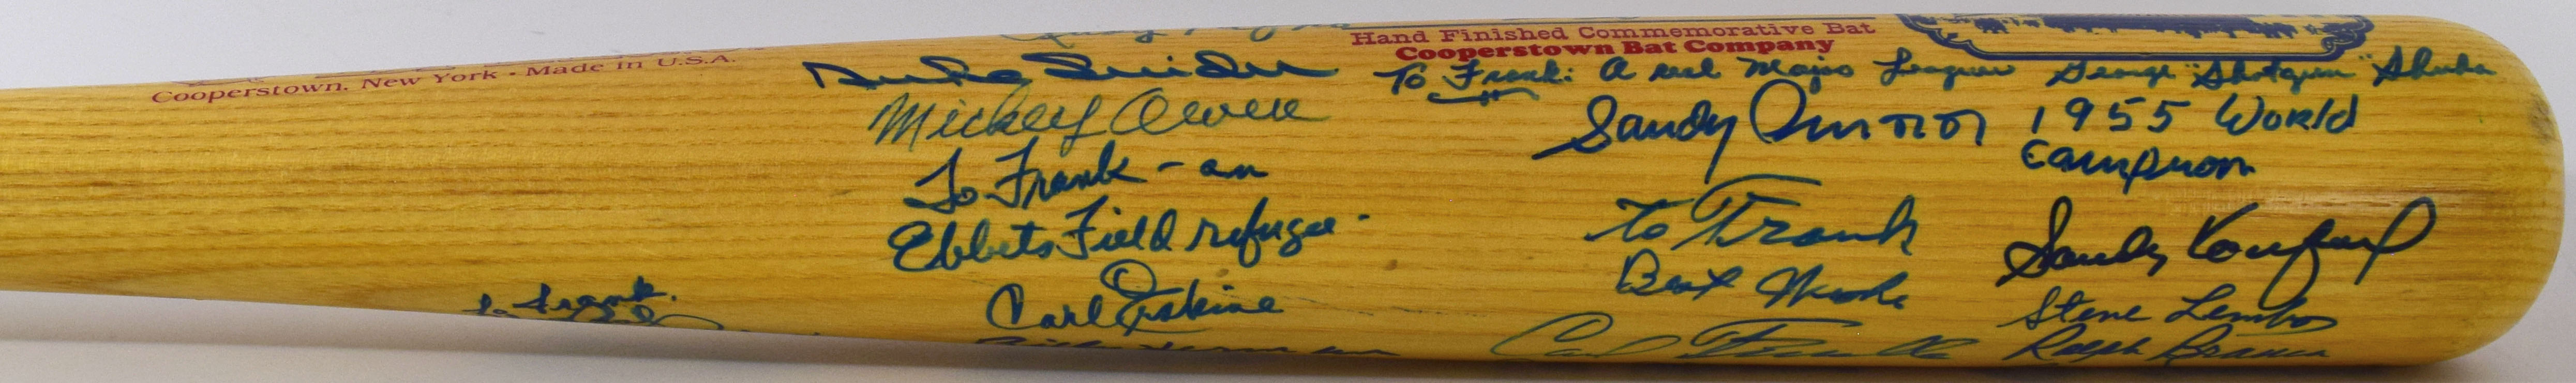 Cooperstown, New York - Made in U.S.A.
Hand Finished Commemorative Bat
Cooperstown Bat Company
Duke Snider
Mickey Owen
To Frank - an
Ebbets Field refugee.
Carl Erskine
To Frank: A real Major Leaguer George "Shotgun" Shuba
Sandy Amoros
1955 World
Campion
To Frank
Best Wishes
Carl Furillo
Sandy Koufax
Steve Lembo
Ralph Branca
To Frank.